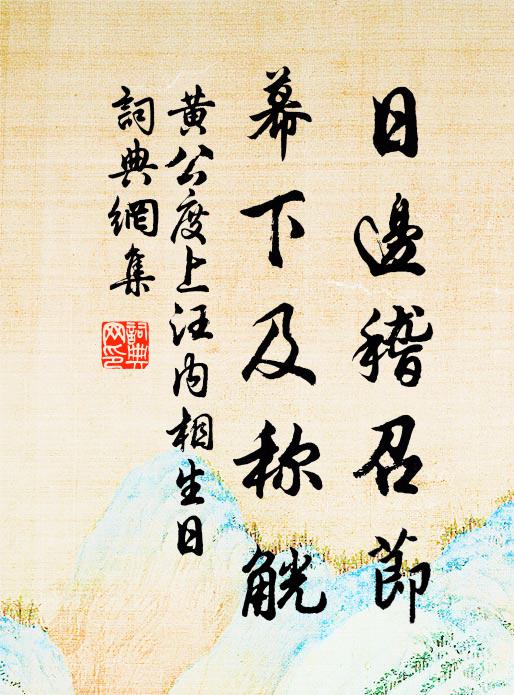 日邊稽召節
幕下及称觥
黄公度上汪内相生日
詞典網集
詞典
网印